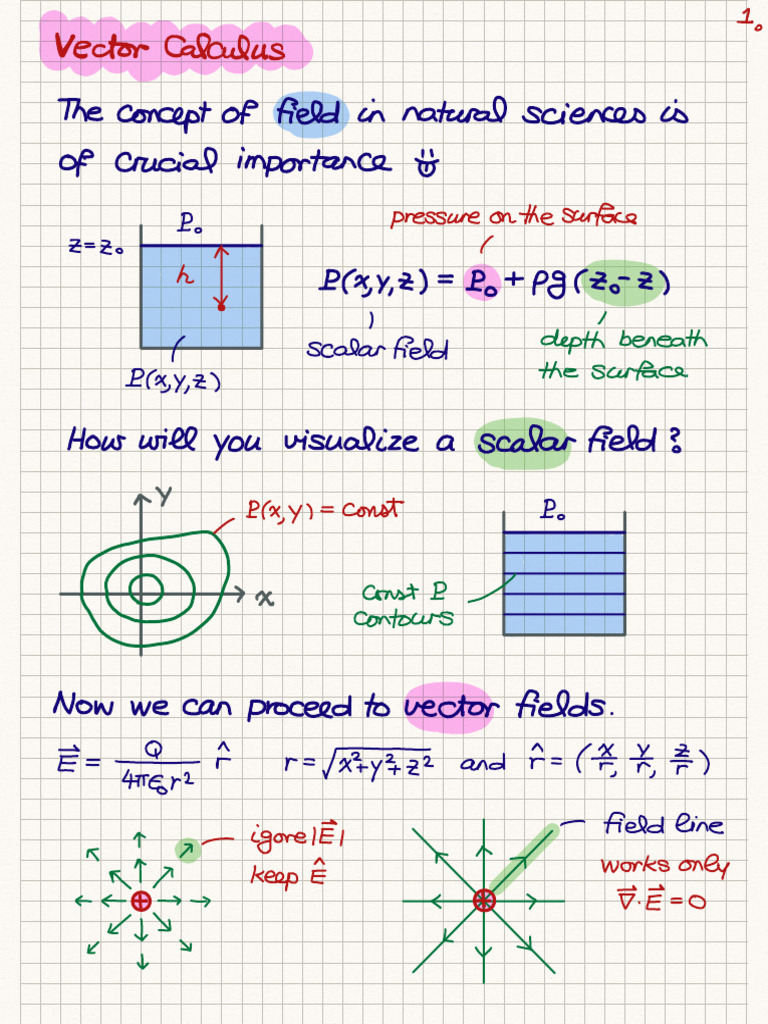 1.
Vector Calculus
The concept of field in natural sciences is
of crucial importance
P₀
z=z₀
h
P(x,y,z)
pressure on the surface
P(x,y,z) = P₀ + ρg(z₀-z)
scalar field
depth beneath
the surface
How will you visualize a scalar field?
y
x
P(x,y) = const
P₀
const P
contours
Now we can proceed to vector fields.
E⃗ = Q/(4πϵ₀r²) r̂ r = √(x²+y²+z²) and r̂ = (x/r, y/r, z/r)
igore |E⃗|
keep Ê
+
field line
works only
∇⃗·E⃗ = 0